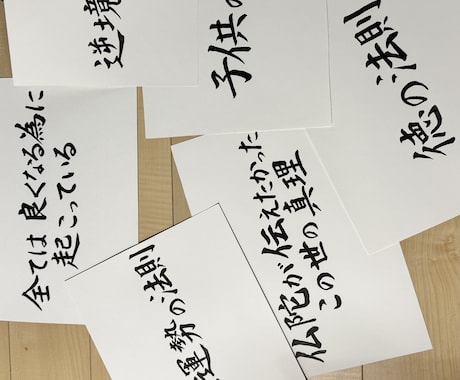 逆境
子供の
徳の法則
全ては良くなる為に
起こっている
仏陀が伝えたかった
この世の真理
運勢の法則